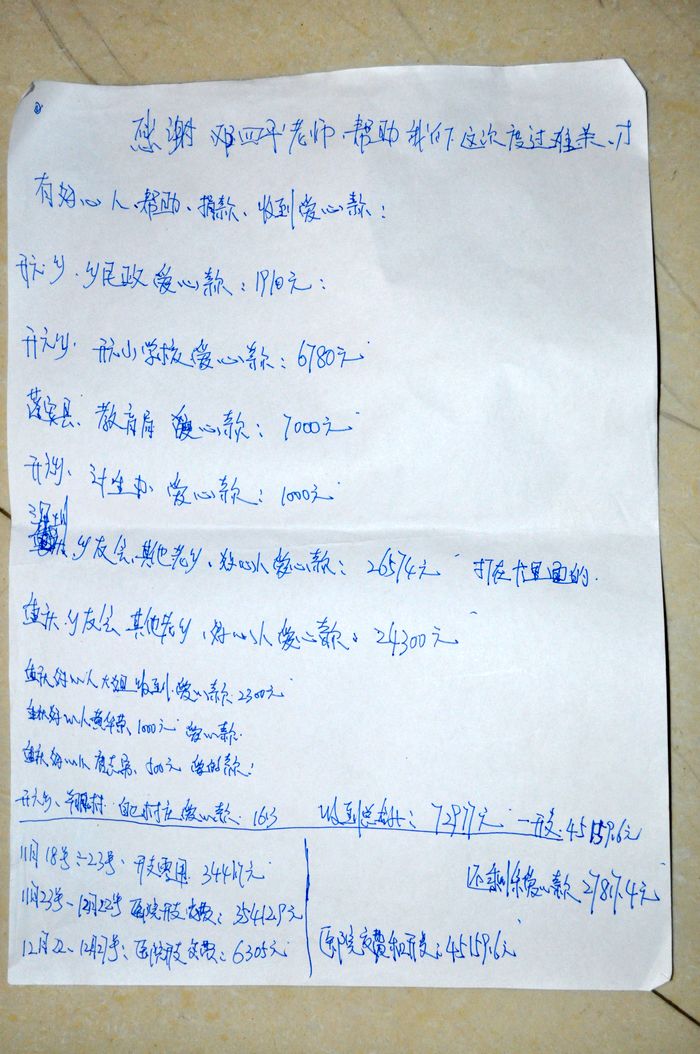 感谢邓四平老师、帮助我们这次度过难关、才
有好心人、帮助、捐款、收到爱心款：
开元乡、乡民政爱心款：1910元：
开元乡 开元小学校爱心款：6780元
县、教育局 爱心款：7000元
计生办 爱心款：1000元
深圳
乡友会、其他老乡、好心人爱心款：26574元 打在卡里面的.
重庆、乡友会 其他老乡、好心人爱心款：24300元
重庆好心人大姐收到爱心款 2300元
重庆好心人黄华荣、1000元 爱心款.
重庆好心人 500元 爱心款：
开元乡、村 自己村庄爱心款 1613 收到总共：72977元 一开支：45159.6元
11月18号－23号、开支零用 3441.7元 还剩余爱心款 27817.4元
11月23号－12月22号 医院开支交费：35412.9元
12月22－12月27号：医院开支交费：6305元 医院交费和开支：45159.6元